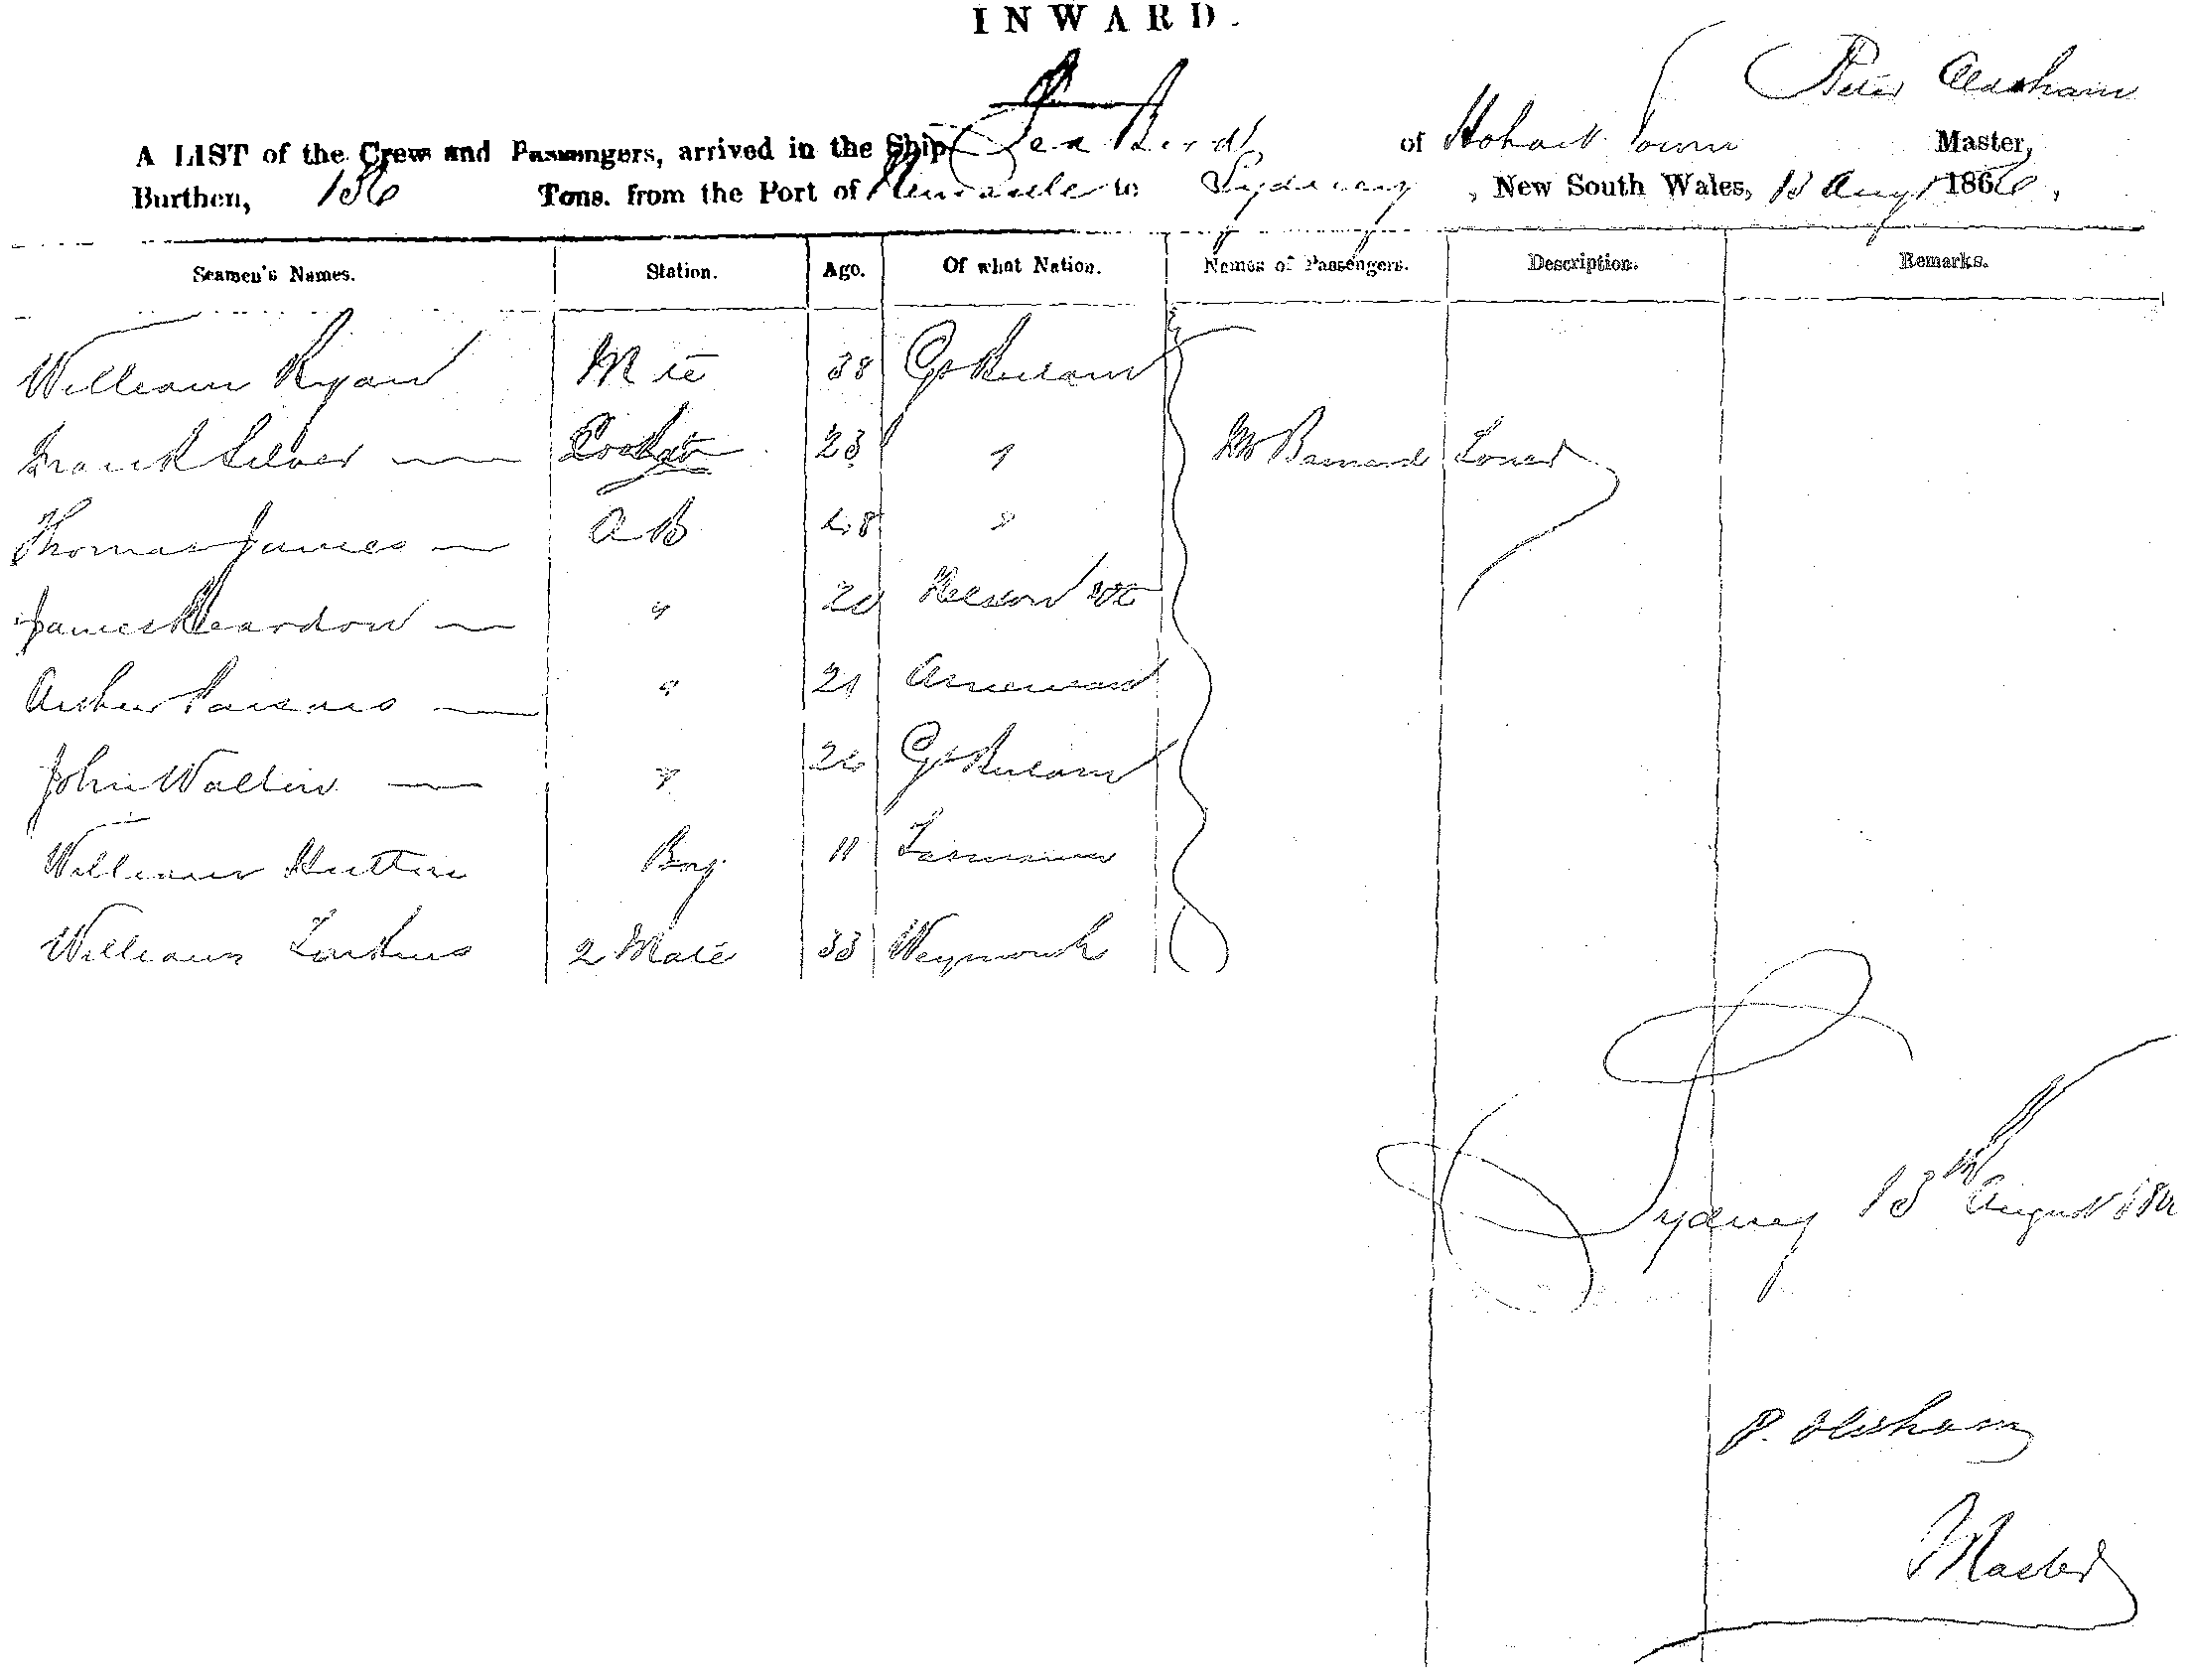 INWARD.
A LIST of the Crew and Passengers, arrived in the Ship Sea Bird of Hobart Town Peter Oldham Master,
Burthen, 136 Tons. from the Port of Newcastle to Sydney , New South Wales, 13 Augt 1866 ,
Seamen's Names. Station. Age. Of what Nation. Names of Passengers. Description. Remarks.
William Ryan 38 Gt Britain
Frank Silver Cook 23 "
Thomas James A B 48 " Mr Barnard
James Reardon " 20 Nelson
Arthur Parsons " 21 American
John Wallin " 26 Gt Britain
William Hutton Boy 11 Tasmania
William Larkins 2 Mate 33 Weymouth
Sydney 13th August
P. Oldham
Master